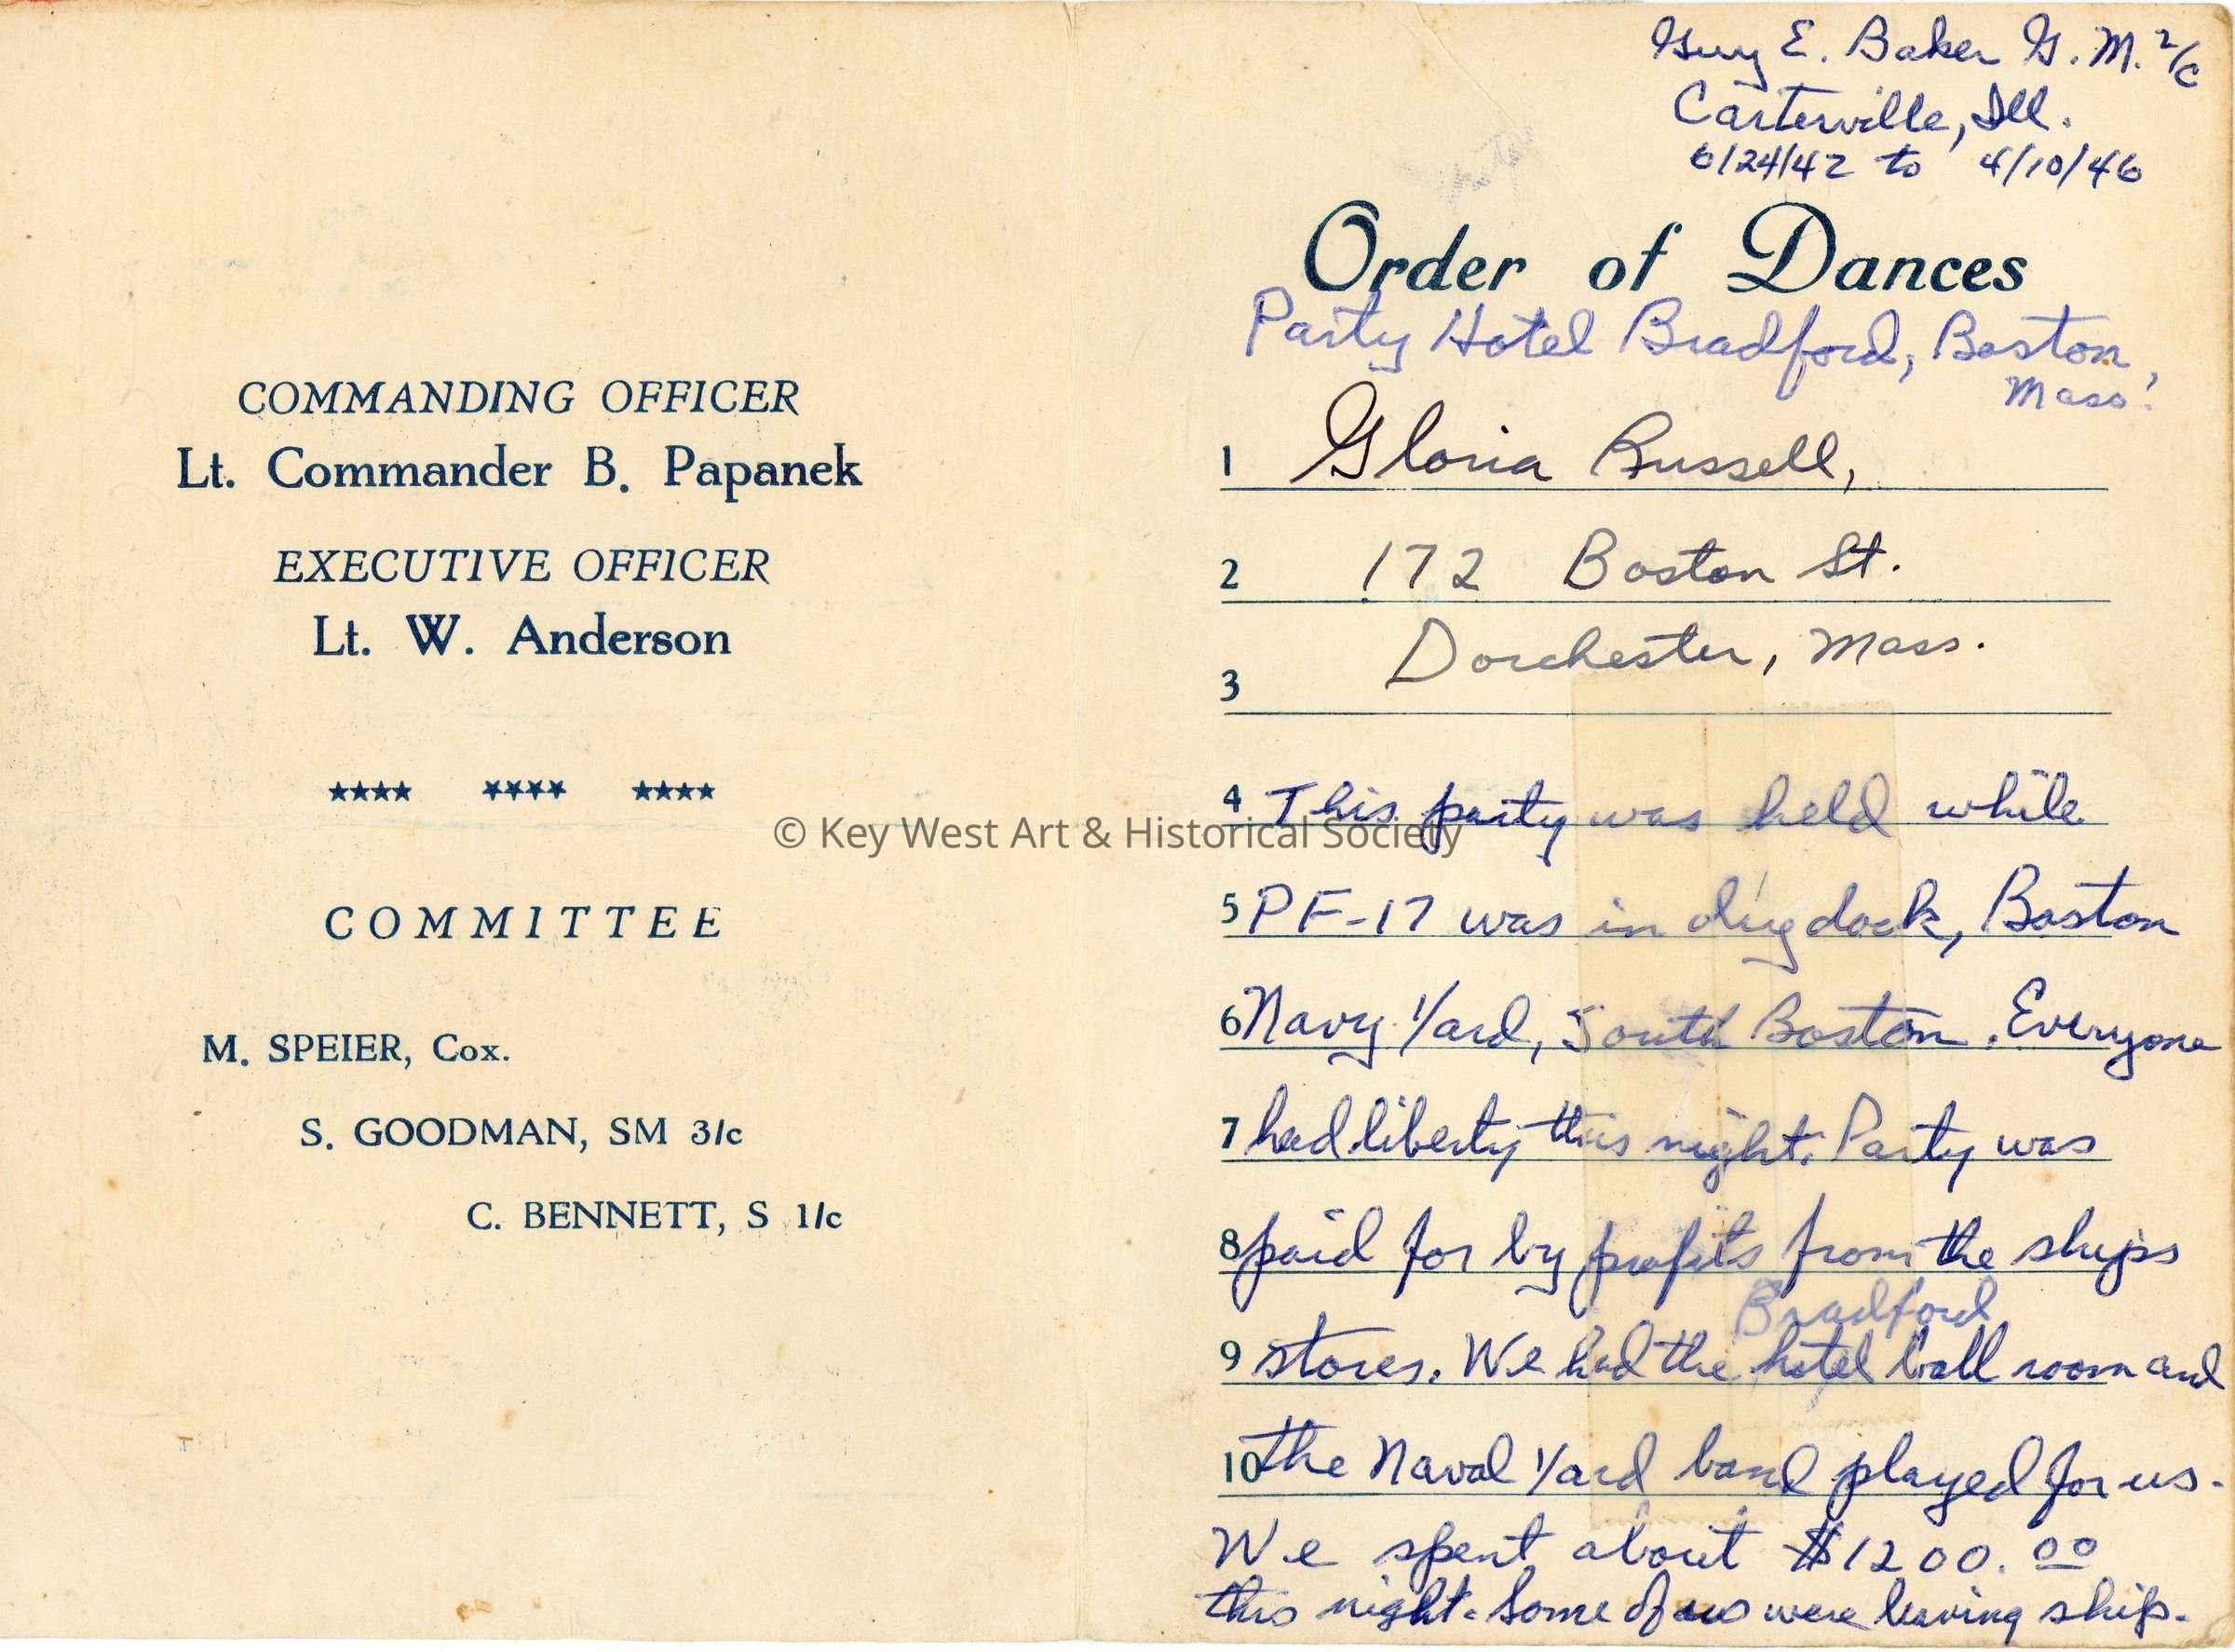 COMMANDING OFFICER
Lt. Commander B. Papanek
EXECUTIVE OFFICER
Lt. W. Anderson
**** **** ****
COMMITTEE
M. SPEIER, Cox.
S. GOODMAN, SM 3/c
C. BENNETT, S 1/c
© Key West Art & Historical Society
Guy E. Baker G.M. 2/c
Carterville, Ill.
6/24/42 to 4/10/46
Order of Dances
Party Hotel Bradford, Boston,
Mass.
1 Gloria Russell,
2 172 Boston St.
3 Dorchester, Mass.
4 This party was held while
5 PF-17 was in dry dock, Boston
6 Navy Yard, South Boston. Everyone
7 had liberty this night. Party was
8 paid for by profits from the ships
Bradford
9 stores. We had the hotel ball room and
10 the Naval Yard band played for us.
We spent about $1200.00
this night. Some of us were leaving ship.